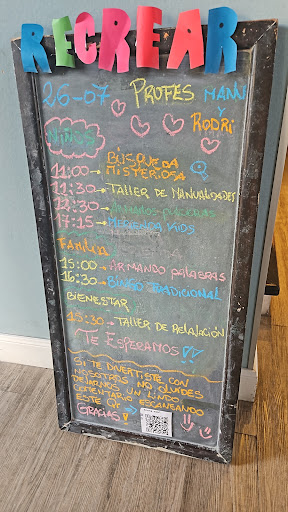 RECREAR
26-07 PROFES MANU
Y
RODRI
NIÑOS
BÚSQUEDA
MISTERIOSA
11:00
11:30 → TALLER DE MANUALIDADES
12:30 → ARMAMOS PULSERAS
17:15 → MERIENDA KIDS
FAMILIA
15:00 → ARMANDO PALABRAS
16:30 → BINGO TRADICIONAL
BIENESTAR
15:30 → TALLER DE RELAJACIÓN
TE ESPERAMOS
SI TE DIVERTISTE CON
NOSOTROS NO OLVIDES
DEJARNOS UN LINDO
COMENTARIO ESCANEANDO
ESTE QR
GRACIAS